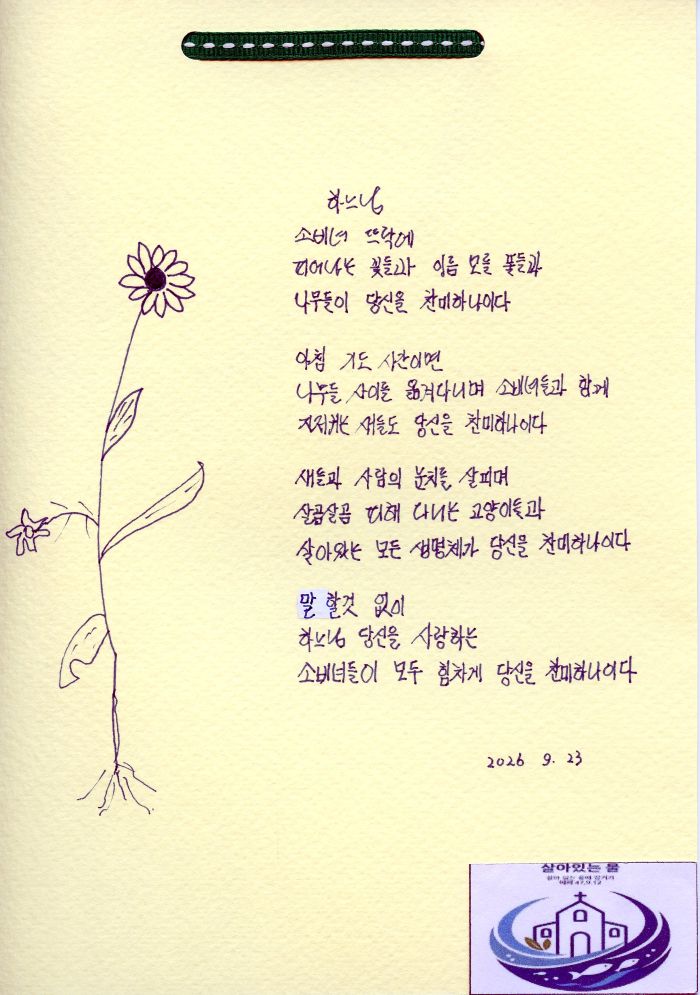 하느님
소비녀 뜨락에
피어나는 꽃들과 이름 모를 풀들과
나무들이 당신을 찬미하나이다
아침 기도 시간이면
나무들 사이를 옮겨다니며 소비녀들과 함께
지저귀는 새들도 당신을 찬미하나이다
새들과 사람의 눈치를 살피며
살곰살곰 피해 다니는 고양이들과
살아있는 모든 생명체가 당신을 찬미하나이다
말 할것 없이
하느님 당신을 사랑하는
소비녀들이 모두 힘차게 당신을 찬미하나이다
2026 9. 23
살아있는 물
47,9.12